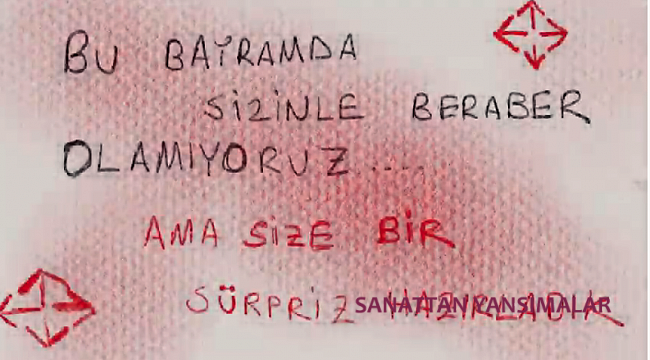 BU BAYRAMDA
SİZİNLE BERABER
OLAMIYORUZ.....
AMA SİZE BİR
SÜRPRİZ HAZIRLADIK
SANATTAN YANSIMALAR